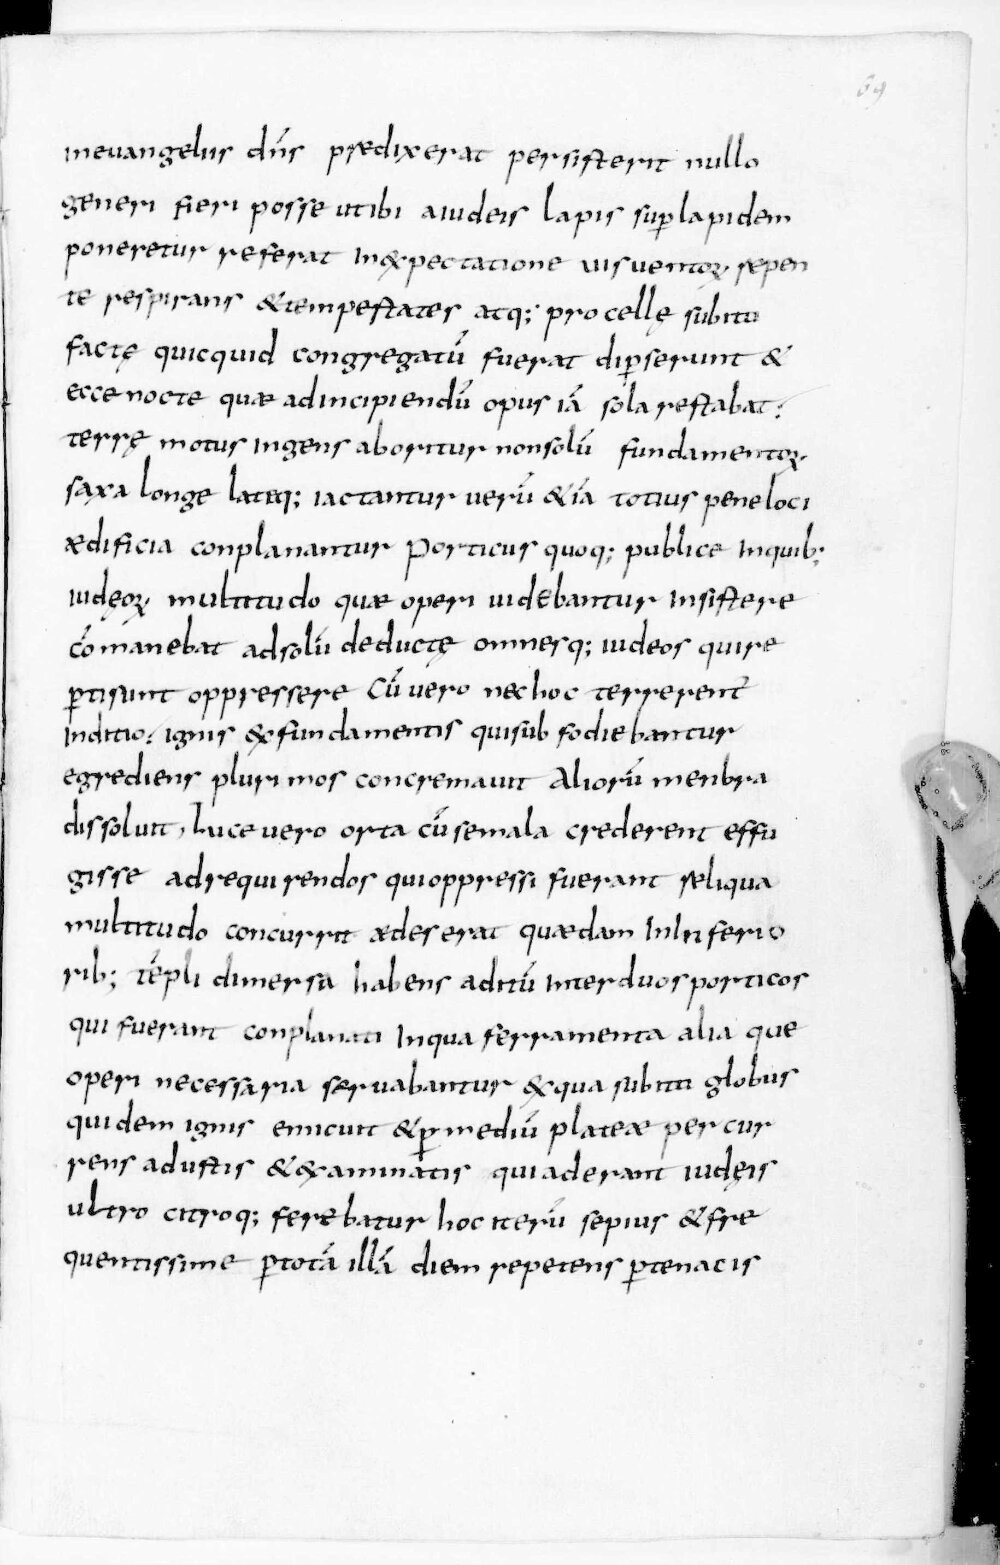 69
inevangeliis dn̄s prædixerat persisterit nullo
generi fieri posse utibi aiudeis lapis sup̄lapidem
poneretur referat inexpectatione uisuentoꝝ sepen
te respirans &tempestates atq; procellę subitu
factę quicquid congregatū fuerat dip̄serunt &
ecce nocte quæ adincipiendū opus iā sola restabat.
terrę motus ingens aboritur nonsolū fundamentoꝝ
saxa longe lateq; iactantur uerū &iā totius peneloci
ædificia conplanantur Porticus quoq; publice inquib;
iudęoꝝ multitudo quæ operi uidebantur insistere
cōmanebat adsolū deductę omnesq; iudeos quire
p̄tisunt oppressere Cū uero nechoc terrerent̄
inditio. ignis &xfundamentis quisub fodiebantur
egrediens plurimos concremauit Aliorū menbra
dissoluit, Luceuero orta cūsemala crederent effu
gisse adrequirendos quioppressi fuerant reliqua
multitudo concurrit ædeserat quædam ininferio
rib; tēpli dimersa habens aditū interduosporticos
qui fuerant conplanati inqua ferramenta alia que
operi necessaria seruabantur &xqua subiti globus
quidem ignis emicuit &p̄ mediū plateæ percur
rens adustis &exanimatis quiaderant iudęis
ultro citroq; ferebatur hoc iterū sepius &fre
quentissime p̄totā illā diem repetens p̄tenacis